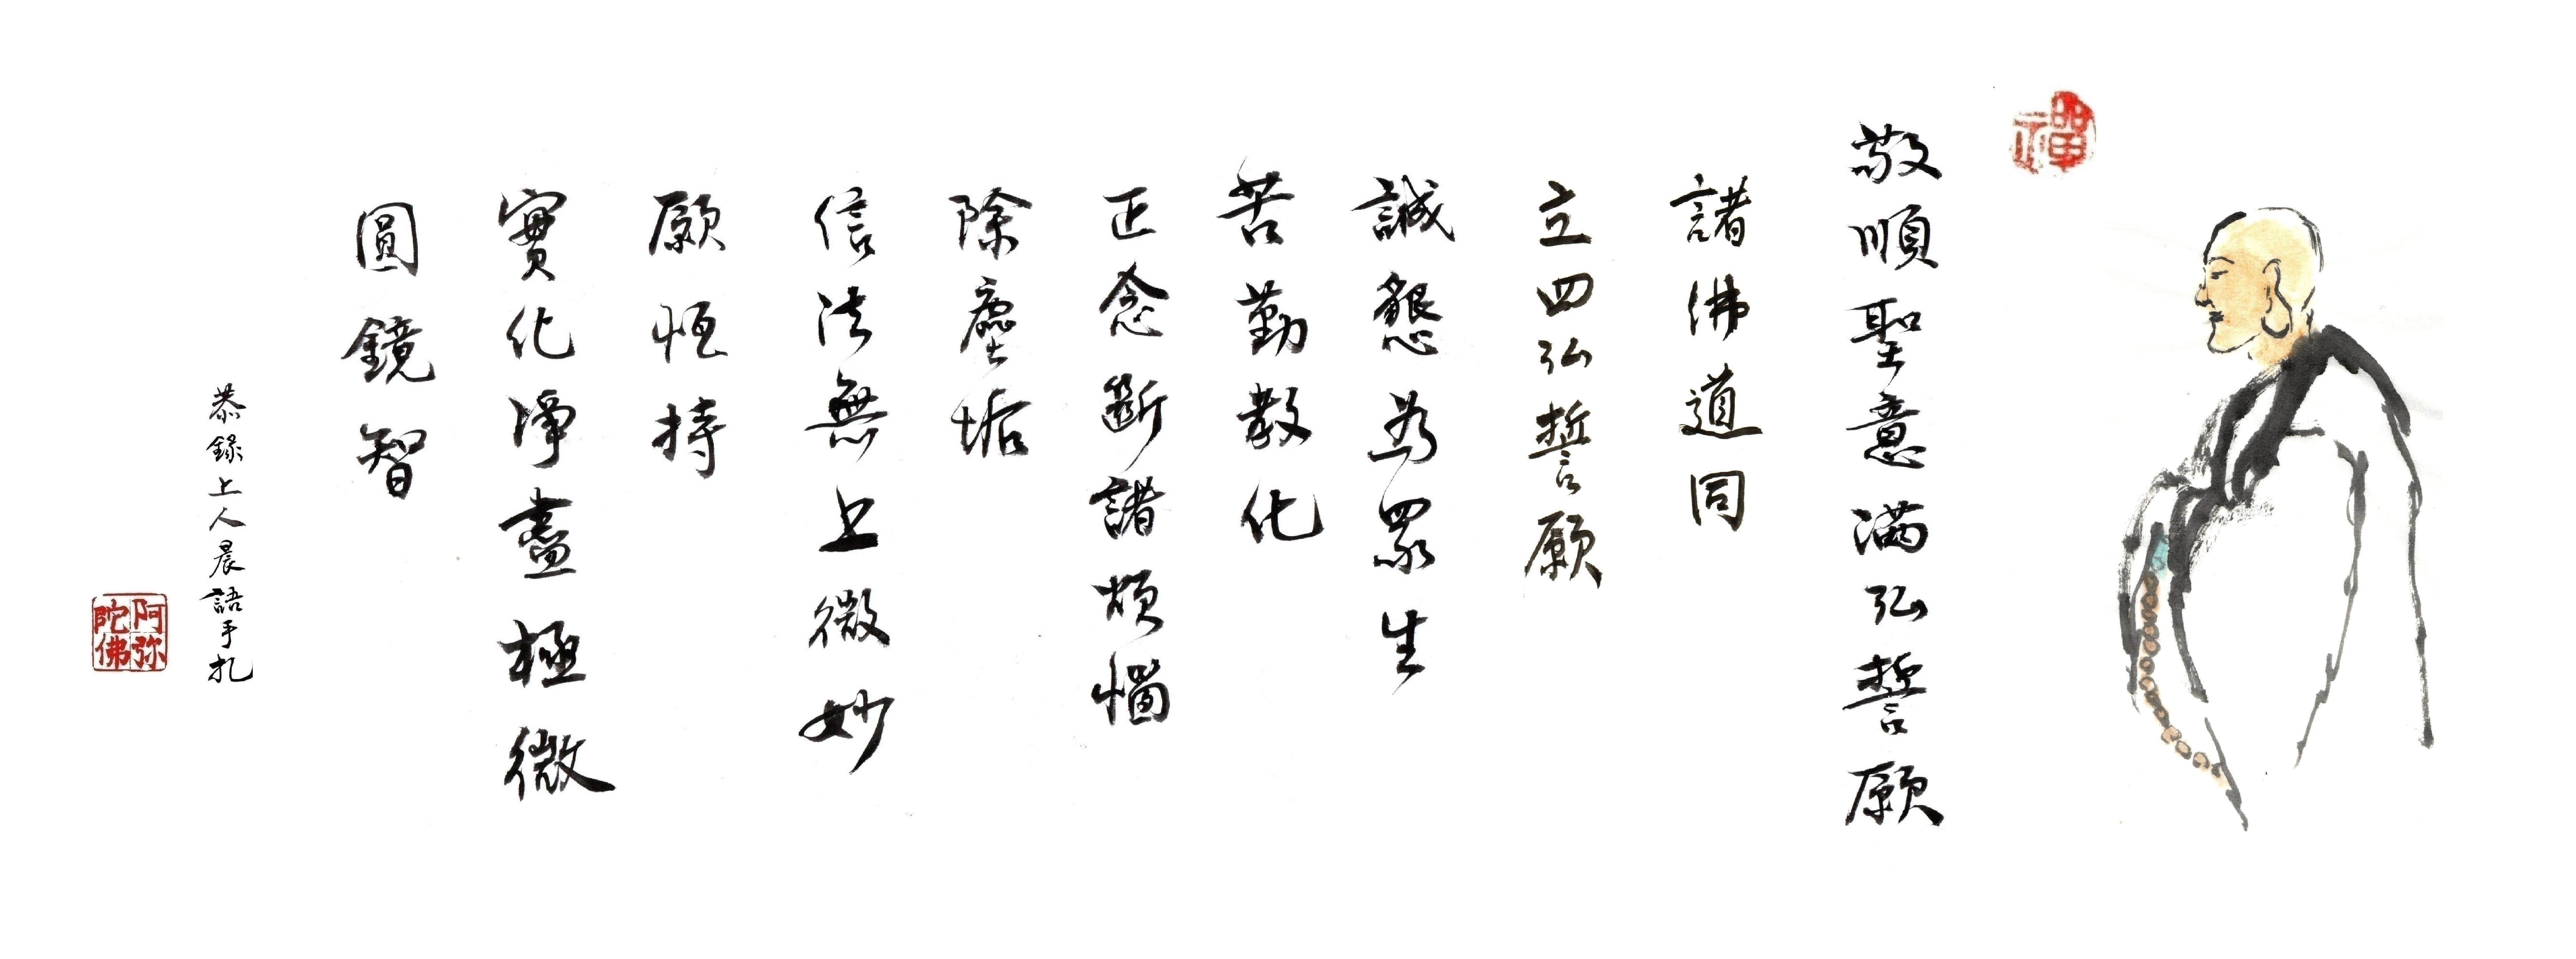 禪
敬順聖意滿弘誓願
諸佛道同
立四弘誓願
誠懇為眾生
苦勤教化
正念斷諸煩惱
除塵垢
信法無上微妙
願恒持
實化淨盡極微
圓鏡智
恭錄上人晨語手札
阿弥
陀佛